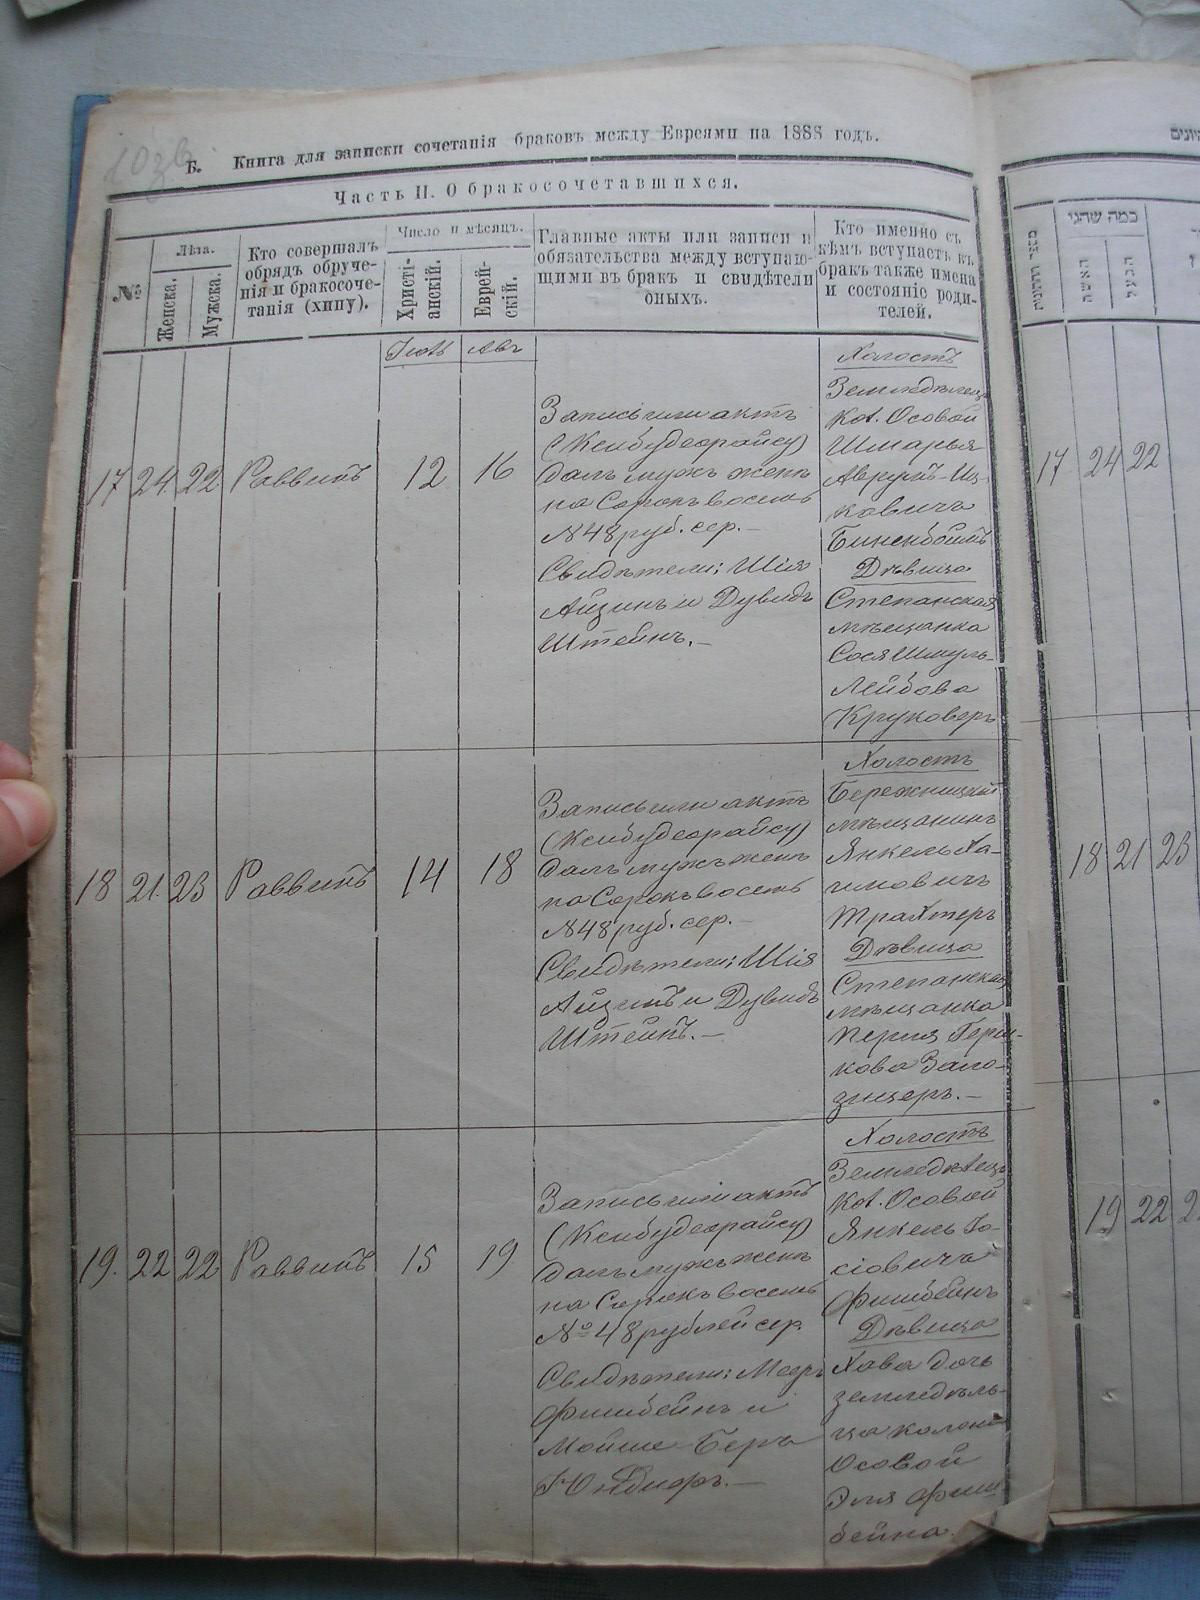 Б. Книга для записки сочетанія браковъ между Евреями на 1888 годъ.
Часть II. О бракосочетавшихся.
№
Лѣта.
Женска.
Мужска.
Кто совершалъ
обрядъ обруче-
нія и бракосоче-
танія (хипу).
Число и мѣсяцъ.
Христі-
анскій.
Еврей-
скій.
Главные акты или записи и
обязательства между вступаю-
щими въ бракъ и свидѣтели
оныхъ.
Кто именно съ
кѣмъ вступаетъ въ
бракъ также имена
и состояніе роди-
телей.
Авъ
17 24 22 Раввинъ 12 16
Запись или актъ
(Ксибудеорайсу)
далъ мужъ женѣ
на Сорокъ восемь
№48 руб. сер.—
Свидѣтели: Шія
Айзинъ и Дувидъ
Штейнъ.—
Холостъ
Земледѣлецъ
Кол. Осовой
Шмарья
Аврумъ-Иц-
ковичъ
Биненбоймъ
Дѣвица
Степанская
мѣщанка
Сося Шмуль-
Лейбова
Круковеръ
18 21 23 Раввинъ 14 18
Запись или актъ
(Ксибудеорайсу)
далъ мужъ женѣ
на Сорокъ восемь
№48 руб. сер.—
Свидѣтели: Шія
Айзинъ и Дувидъ
Штейнъ.—
Холостъ
Бережницкій
мѣщанинъ
Янкель Ха-
имовичъ
Трахтеръ
Дѣвица
Степанская
мѣщанка
Перля Герш-
кова Зало-
зицеръ.—
19. 22 22 Раввинъ 15 19
Запись или актъ
(Ксибудеорайсу)
далъ мужъ женѣ
на Сорокъ восемь
№ 48 рублей сер.
Свидѣтели: Мееръ
Фишбейнъ и
Мойше-Беръ
Холостъ
Земледѣлецъ
Кол. Осовой
Янкель Іо-
сіовичъ
Фишбейнъ
Дѣвица
Хава дочь
земледѣль-
ца колоніи
Осовой
Эля Фиш-
бейна.
כמה שהני
האשה
הבעל
17 24 22
18 21 23
19 22